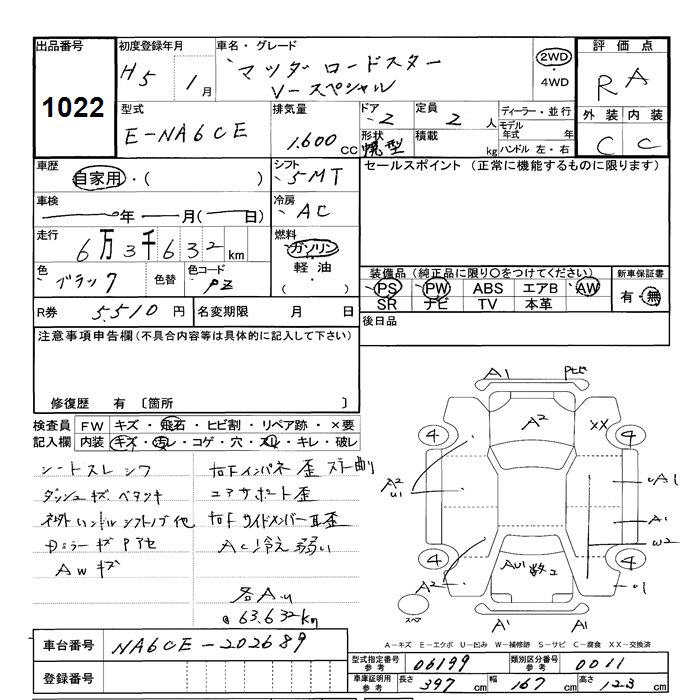 出品番号 初度登録年月 車名・グレード 評価点
1022 H5年 1月 マツダ ロードスター Vースペシャル 2WD・4WD RA
型式 排気量 ドア 定員 ディーラー・並行 外装 内装
E-NA6CE 1.600CC 2 2人 モデル年式 年 C C
形状 積載 kg ハンドル 左・右
車歴 シフト セールスポイント (正常に機能するものに限ります)
自家用・( ) 5MT
車検 冷房
年 月( 日) AC
走行 燃料
6万3千632km ガソリン・軽油・( )
色 色替 色コード 装備品(純正品に限り○をつけてください) 新車保証書
ブラック PZ PS PW ABS エアB AW 有・無
SR ナビ TV 本革
R券 5.510円 名変期限 月 日 後日品
注意事項申告欄(不具合内容等は具体的に記入して下さい)
修復歴 有 〔箇所 〕
検査員記入欄 FW キズ・飛石・ヒビ割・リペア跡・×要
内装 キズ・汚レ・コゲ・穴・スレ・キレ・破レ
シートスレ シワ 右Fインパネ歪
ダッシュキズ ベタツキ コアサポート歪
ハンドル シフトノブ他 右Fサイドメンバー
AWキズ AC冷え弱い
@63.632km
A1 A2 XX
4 4
A2 U1 A1
A1
W2
4 4
A2 AU1
スペア
A1 A1
A－キズ E－エクボ U－凹み W－補修跡 S－サビ C－腐食 XX－交換済
車台番号 NA6CE-202689
登録番号
型式指定番号参考 06199 類別区分番号参考 0011
車庫証明用参考 長さ 397cm 幅 167cm 高さ 123cm